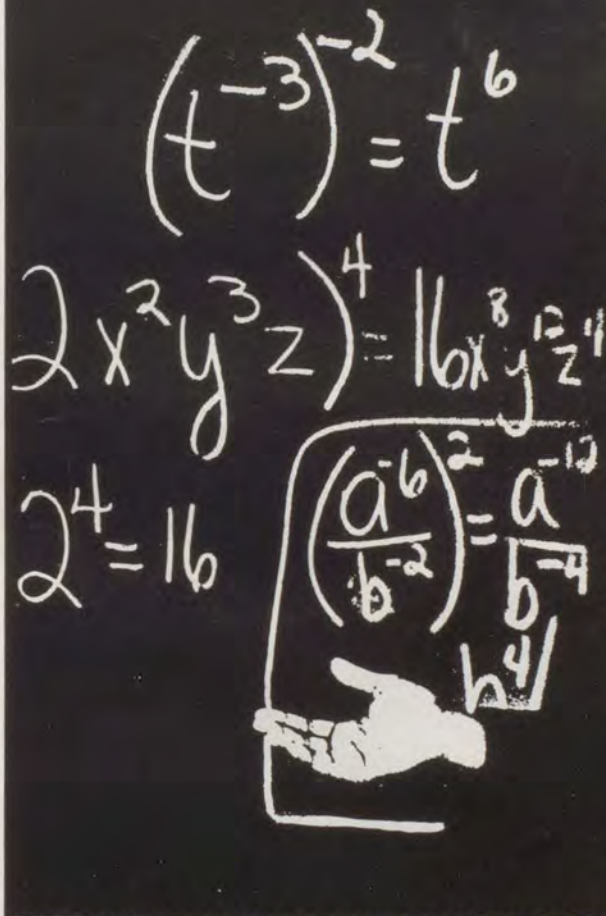 (t⁻³)⁻² = t⁶
2x²y³z)⁴ = 16x⁸y¹²z⁴
2⁴ = 16
(a⁻⁶/b⁻²)² = a⁻¹²/b⁻⁴
b⁴